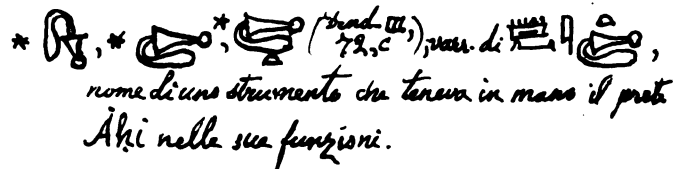 * , * *, (Dend. III, 72, c), varr. di ,
nome di uno strumento che teneva in mano il prete
Ȧḥi nelle sue funzioni.